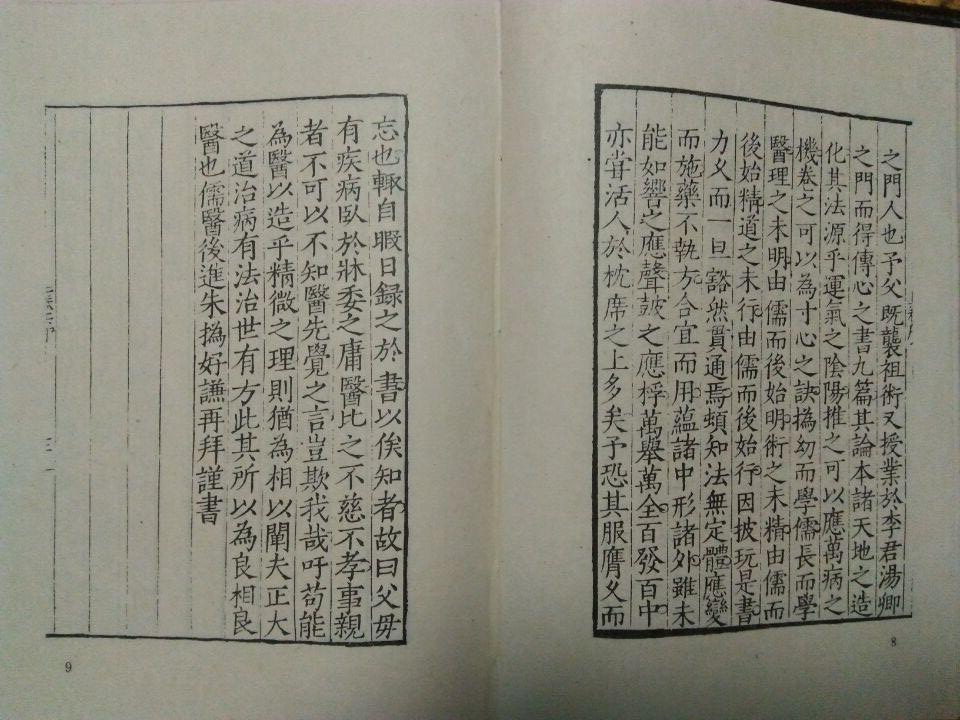 之門人也予父既襲祖術又授業於李君湯卿
之門而得傳心之書九篇其論本諸天地之造
化其法源乎運氣之陰陽推之可以應萬病之
機卷之可以為寸心之訣撝幼而學儒長而學
醫理之未明由儒而後始明術之未精由儒而
後始精道之未行由儒而後始行因披玩是書
力久而一旦豁然貫通焉頓知法無定體應變
而施藥不執方合宜而用蘊諸中形諸外雖未
能如響之應聲鼓之應桴萬舉萬全百發百中
亦嘗活人於枕席之上多矣予恐其服膺久而
8
忘也輙自暇日録之於書以俟知者故曰父母
有疾病臥於牀委之庸醫比之不慈不孝事親
者不可以不知醫先覺之言豈欺我哉吁苟能
為醫以造乎精微之理則猶為相以闡夫正大
之道治病有法治世有方此其所以為良相良
醫也儒醫後進朱撝好謙再拜謹書
9